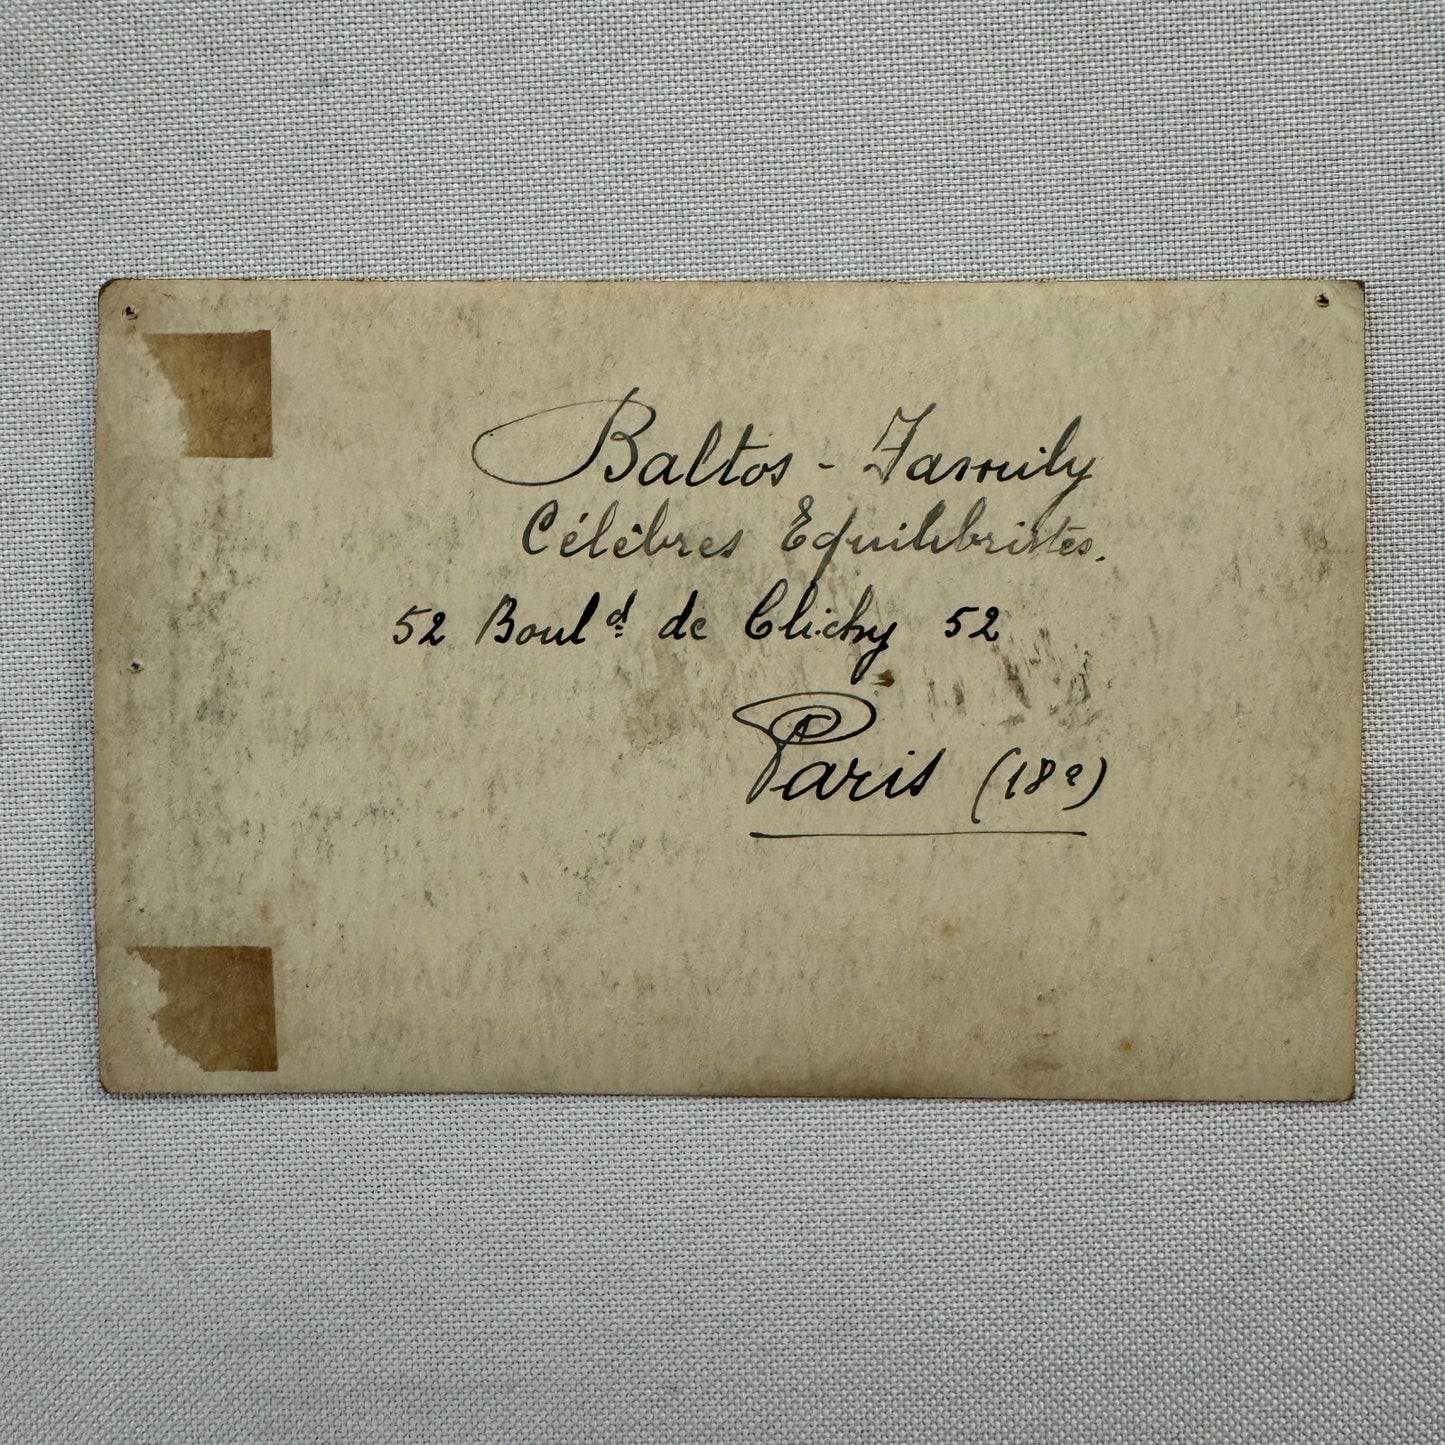 Baltos - Family
Célèbres Equilibristes.
52 Boul.d de Clichy 52
Paris (18e)